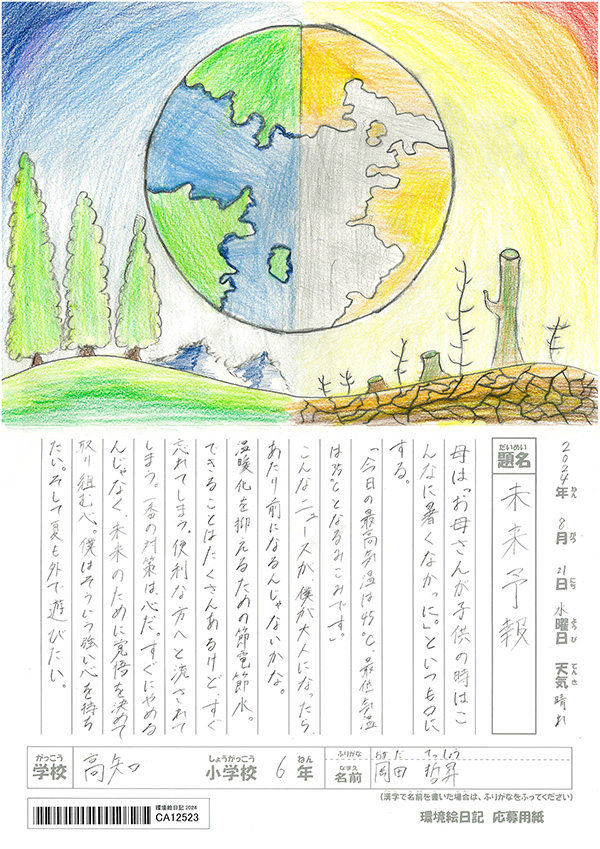 2024年ねん 8月がつ 21日にち 水曜日ようび 天気てんき 晴れ
題名だいめい 未来予報
母は「お母さんが子供の時はこ
んなに暑くなかったに。」といつも口に
する。
「今日の最高気温は45℃、最低気温
は35℃となるみこみです。」
こんなニュースが、僕が大人になったら
あたり前になるんじゃないかな。
温暖化を抑えるための節電節水。
できることはたくさんあるけど、すぐ
忘れてしまう。便利な方へと流されて
しまう。一番の対策は、心だ。すぐにやめる
んじゃなく、未来のために覚悟を決めて
取り組む心。僕はそういう強い心を持ち
たい。そして夏も外で遊びたい。
学校がっこう 高知 小学校しょうがっこう 6年ねん
ふりがな おかだ てっしょう
名前なまえ 岡田 哲昇
(漢字で名前を書いた場合は、ふりがなをふってください)
環境絵日記 2024
CA12523
環境絵日記 応募用紙